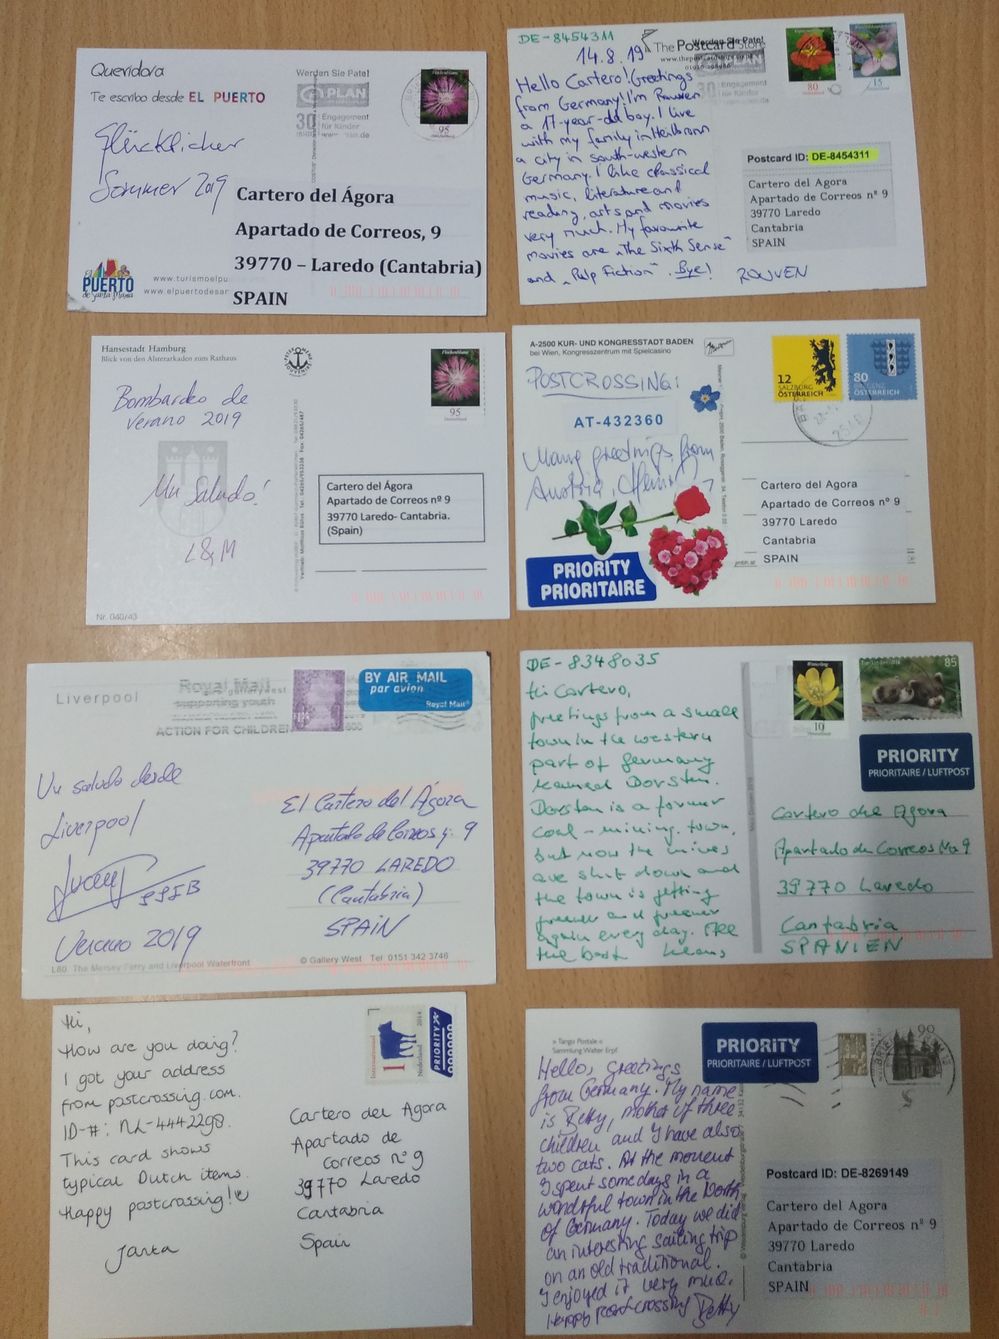 Queridora
Te escribo desde EL PUERTO
Glücklicher
Sommer 2019
PUERTO
de Santa María
www.turismoelpu
www.elpuertodesan
Werden Sie Pate!
PLAN
30
Engagement
für Kinder
95
Cartero del Ágora
Apartado de Correos, 9
39770 – Laredo (Cantabria)
SPAIN
DE-8454311
14.8.19
The Postcard Store
Werden Sie Pate!
PLAN
30
Engagement
für Kinder
80
15
Hello Cartero! Greetings
from Germany! I'm Rouven
a 17-year-old boy. I live
with my family in Heilbronn
a city in south-western
Germany. I like classical
music, literature and
reading, arts and movies
very much. My favourite
movies are "The Sixth Sense"
and "Pulp Fiction". Bye!
ROUVEN
Postcard ID: DE-8454311
Cartero del Agora
Apartado de Correos nº 9
39770 Laredo
Cantabria
SPAIN
Hansestadt Hamburg
Blick von den Alsterarkaden zum Rathaus
Bombardeo de
Verano 2019
Un Saludo!
L&M
Nr. 040/43
95
Cartero del Ágora
Apartado de Correos nº 9
39770 Laredo- Cantabria.
(Spain)
A-2500 KUR- UND KONGRESSTADT BADEN
bei Wien, Kongresszentrum mit Spielcasino
POSTCROSSING:
AT-432360
Many greetings from
Austria,
PRIORITY
PRIORITAIRE
12
SALZBURG
ÖSTERREICH
80
BREGENZ
ÖSTERREICH
Cartero del Agora
Apartado de Correos nº 9
39770 Laredo
Cantabria
SPAIN
Liverpool
Royal Mail
supporting youth
ACTION FOR CHILDREN
BY AIR MAIL
par avion
Royal Mail
Un saludo desde
Liverpool
Verano 2019
El Cartero del Ágora
Apartado de Correos nº 9
39770 LAREDO
(Cantabria)
SPAIN
L80 The Mersey Ferry and Liverpool Waterfront
© Gallery West Tel 0151 342 3746
DE-8348035
Hi Cartero,
greetings from a small
town in the western
part of Germany
named Dorsten.
Dorsten is a former
coal-mining town,
but now the mines
are shut down and
the town is getting
greener and greener
again every day. All
the best Klaus
10
85
PRIORITY
PRIORITAIRE / LUFTPOST
Cartero del Agora
Apartado de Correos No 9
39770 Laredo
Cantabria
SPANIEN
Hi,
How are you doing?
I got your address
from postcrossing.com.
ID-#: NL-4442298.
This card shows
typical Dutch items.
Happy postcrossing!
Janta
Internationaal
1
Nederland 2014
PRIORITY
Cartero del Agora
Apartado de
Correos nº 9
39770 Laredo
Cantabria
Spain
» Tango Portale «
Sammlung Walter Erpf
PRIORITY
PRIORITAIRE / LUFTPOST
90
Hello, greetings
from Germany. My name
is Betty, mother of three
children and I have also
two cats. At the moment
I spent some days in a
wondrful town in the North
of Germany. Today we did
an interesting sailing trip
on an old traditional.
I enjoyed it very much.
Happy postcrossing Betty
Postcard ID: DE-8269149
Cartero del Agora
Apartado de Correos nº 9
39770 Laredo
Cantabria
SPAIN